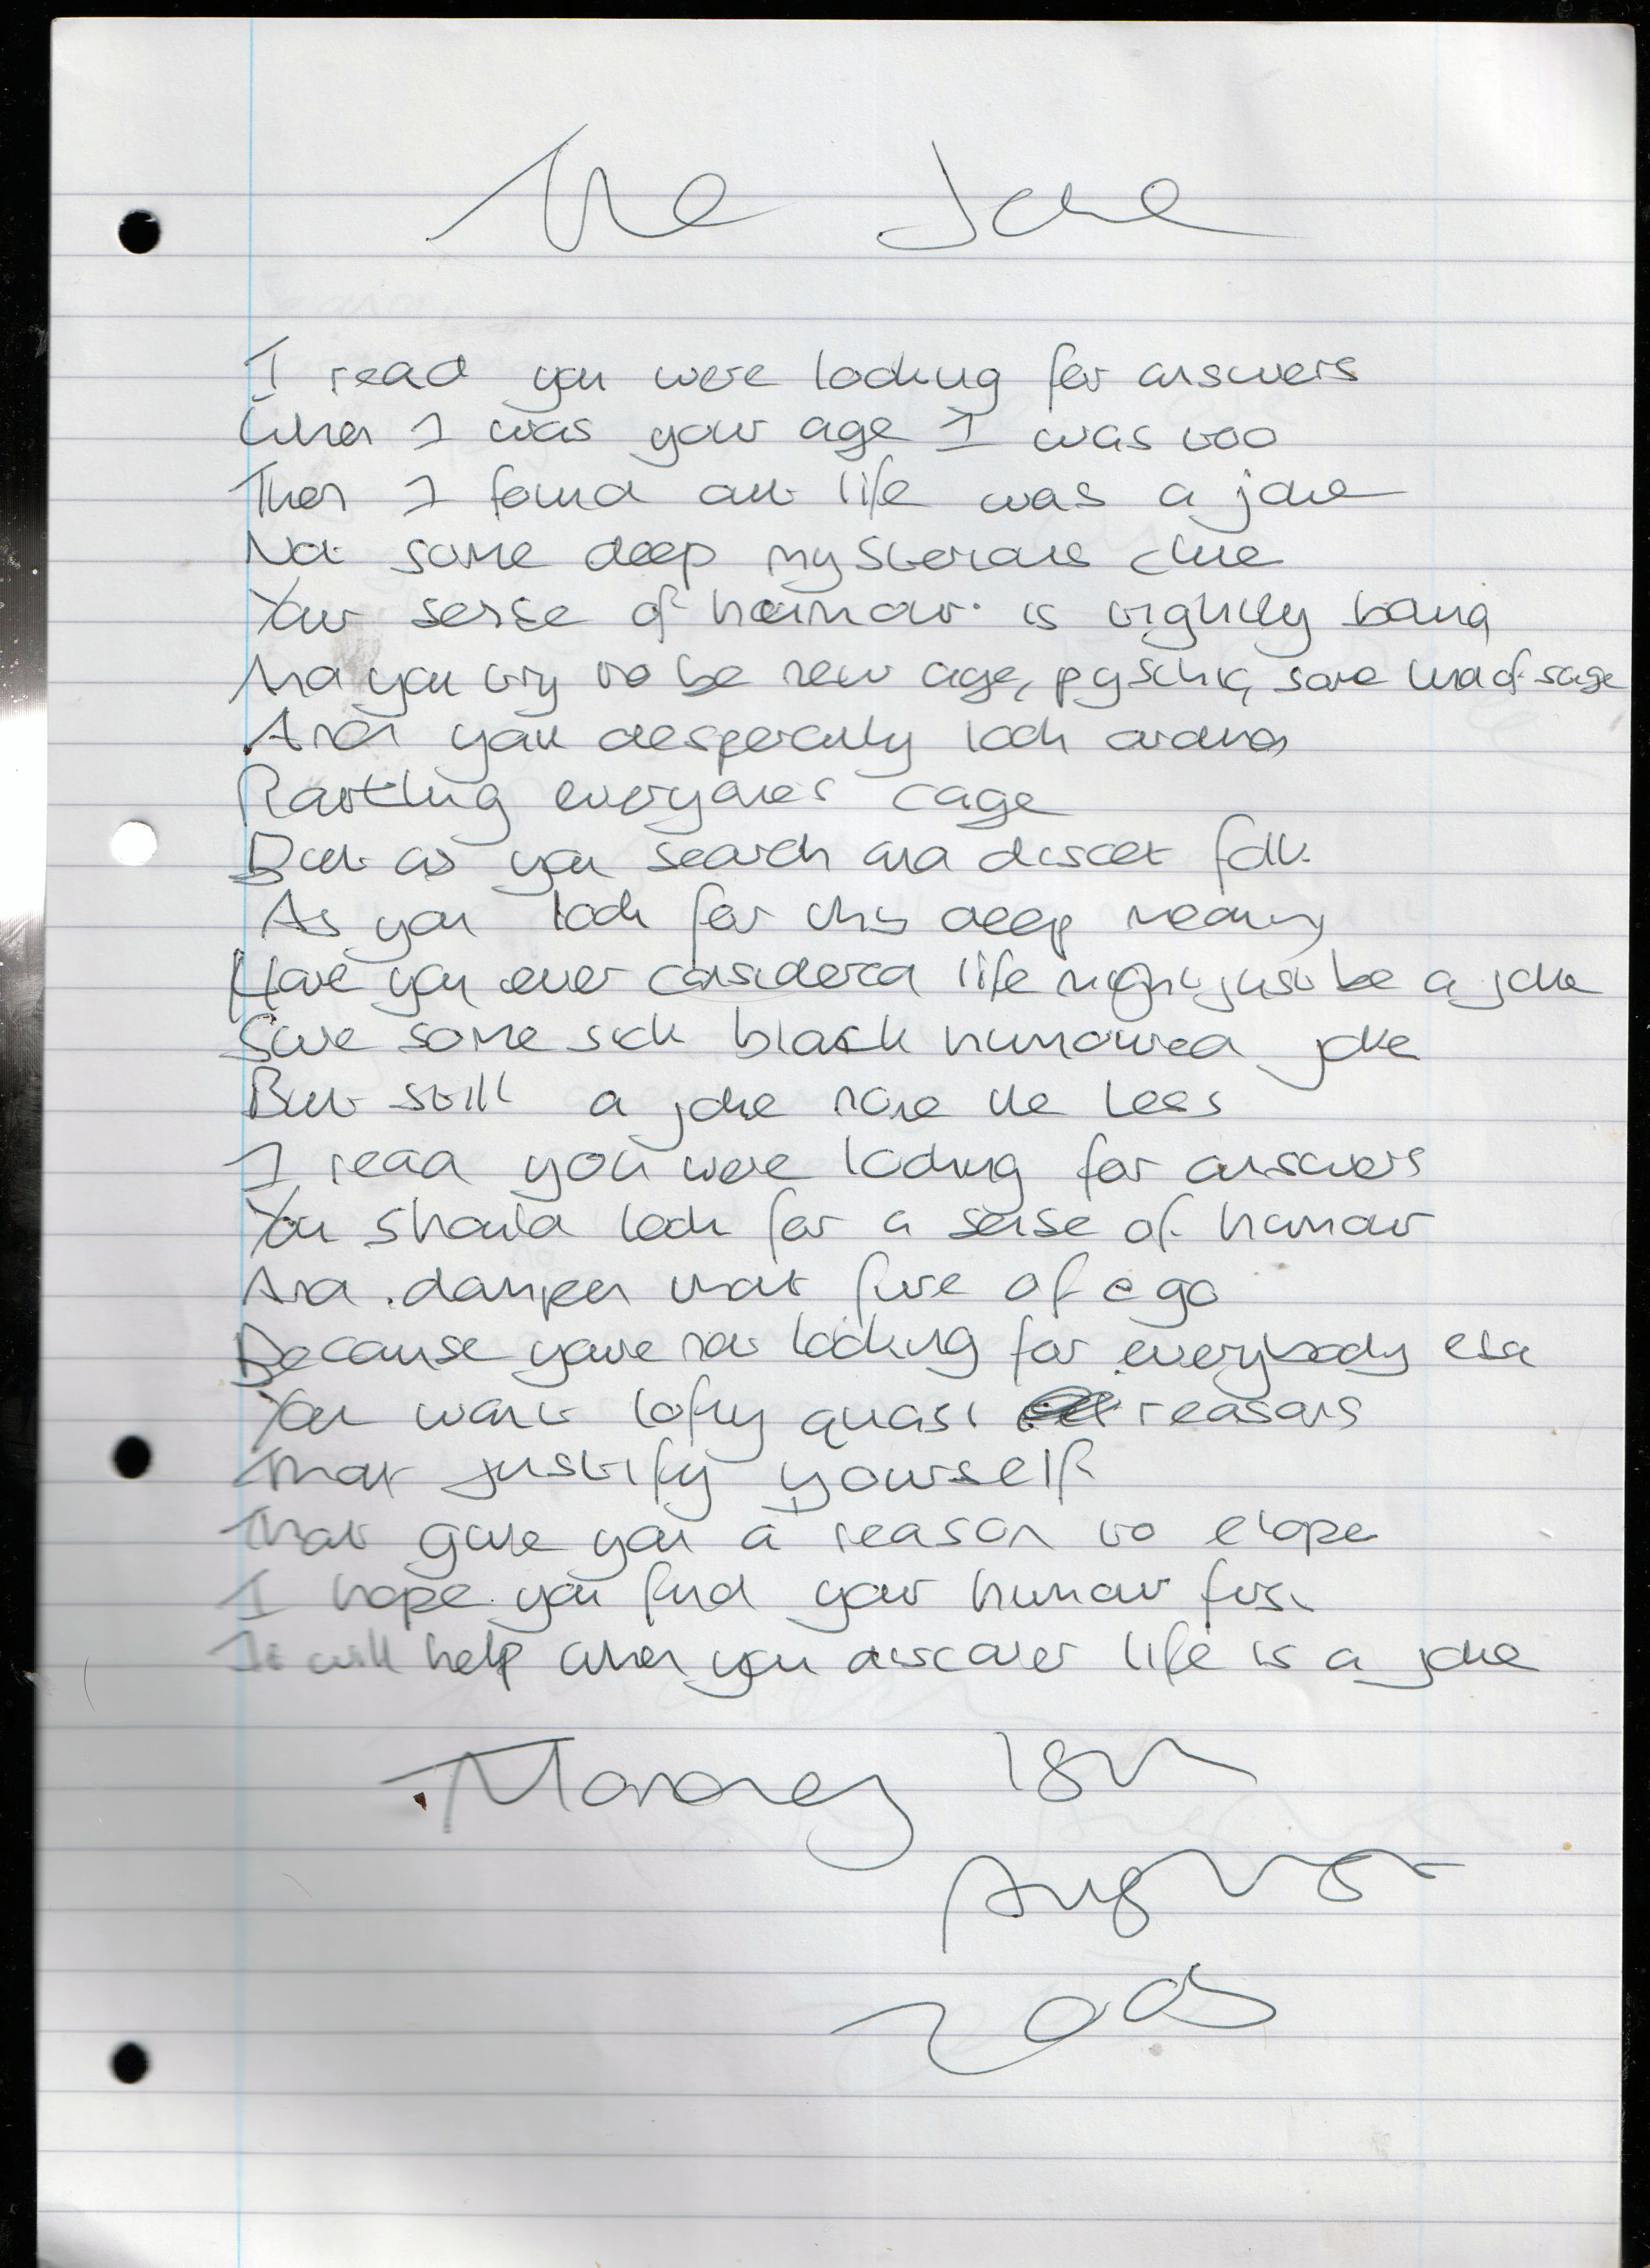 The Joke
I read you were looking for answers
When I was your age I was too
Then I found out life was a joke
Not some deep mysterous clue
Your sense of humour is tightly bound
And you try to be new age, pyschic, some kind of sage
And you desperatly look around
Rattling everyones cage
But as you search and disect folk
As you look for this deep meaning
Have you ever considered life might just be a joke
Sure some sick black humoured joke
But still a joke none the less
I read you were looking for answers
You should look for a sense of humour
And dampen that fire of ego
Because youre not looking for everybody else
You want lofty quasi reasons
That justify yourself
That give you a reason to elope
I hope you find your humour first
It will help when you discover life is a joke
Monday 18th
August